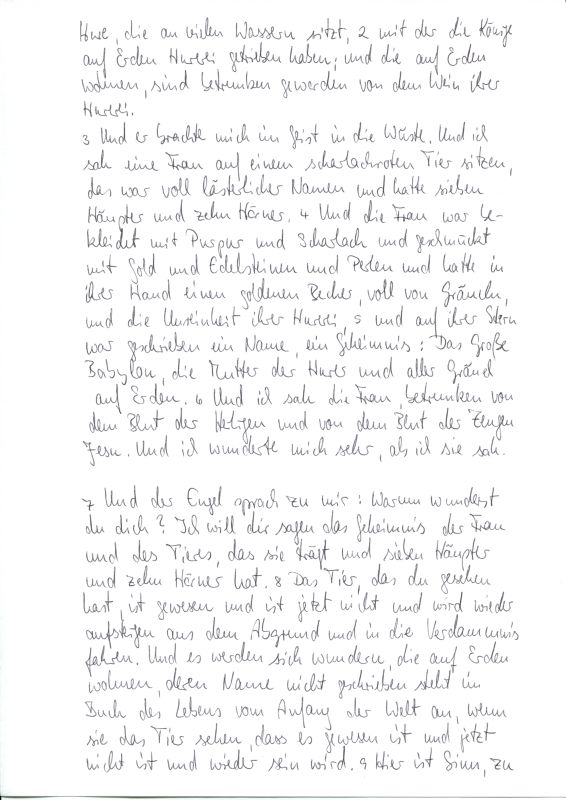 Hure, die an vielen Wassern sitzt, 2 mit der die Könige
auf Erden Hurerei getrieben haben; und die auf Erden
wohnen, sind betrunken geworden von dem Wein ihrer
Hurerei.
3 Und er brachte mich im Geist in die Wüste. Und ich
sah eine Frau auf einem scharlachroten Tier sitzen,
das war voll lästerlicher Namen und hatte sieben
Häupter und zehn Hörner. 4 Und die Frau war be-
kleidet mit Purpur und Scharlach und geschmückt
mit Gold und Edelsteinen und Perlen und hatte in
ihrer Hand einen goldenen Becher, voll von Gräueln,
und die Unreinheit ihrer Hurerei, 5 und auf ihrer Stirn
war geschrieben ein Name, ein Geheimnis: Das Große
Babylon, die Mutter der Hurerei und aller Gräuel
auf Erden. 6 Und ich sah die Frau, betrunken von
dem Blut der Heiligen und von dem Blut der Zeugen
Jesu. Und ich wunderte mich sehr, als ich sie sah.
7 Und der Engel sprach zu mir: Warum wunderst
du dich? Ich will dir sagen das Geheimnis der Frau
und des Tieres, das sie trägt und sieben Häupter
und zehn Hörner hat. 8 Das Tier, das du gesehen
hast, ist gewesen und ist jetzt nicht und wird wieder
aufsteigen aus dem Abgrund und in die Verdammnis
fahren. Und es werden sich wundern, die auf Erden
wohnen, deren Name nicht geschrieben steht im
Buch des Lebens vom Anfang der Welt an, wenn
sie das Tier sehen, dass es gewesen ist und jetzt
nicht ist und wieder sein wird. 9 Hier ist Sinn, zu